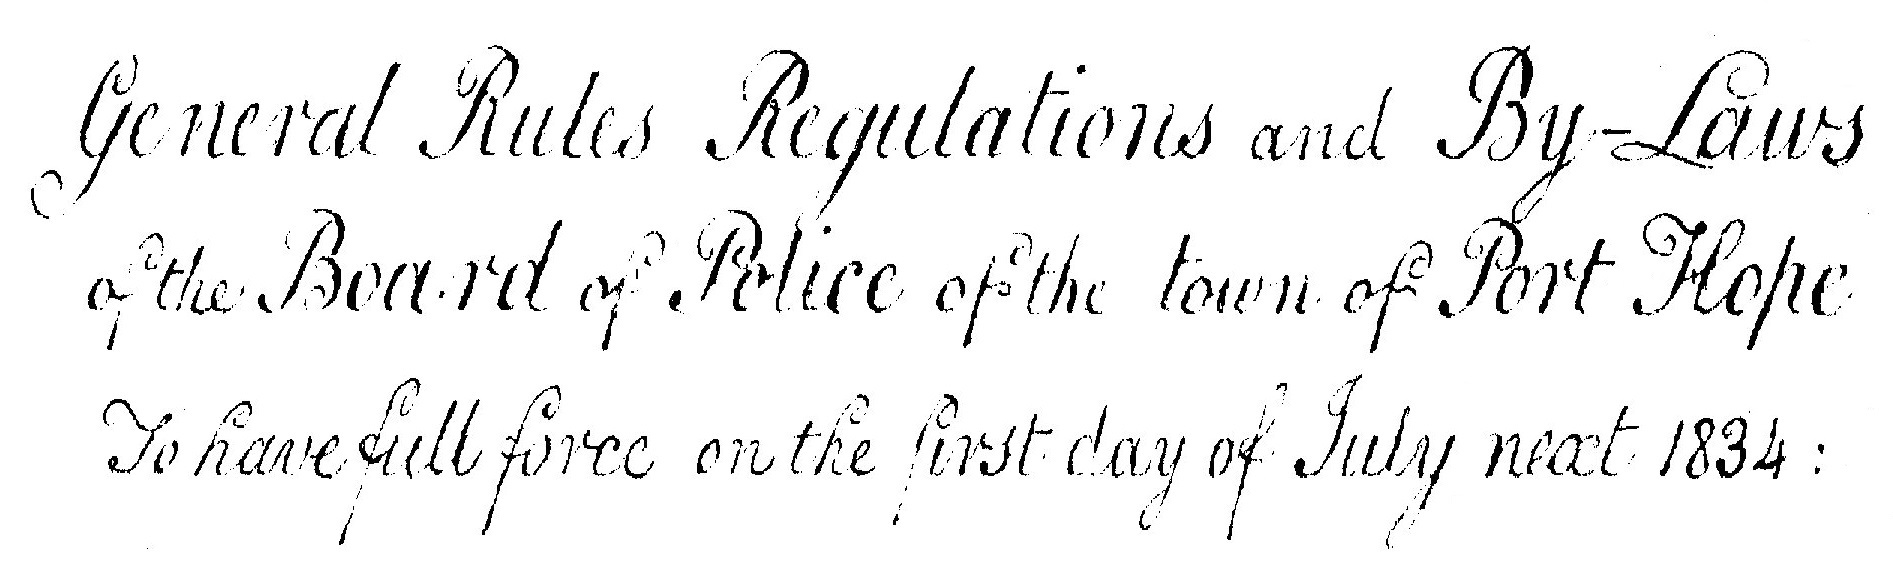 General Rules Regulations and By-Laws
of the Board of Police of the town of Port Hope
To have full force on the first day of July next 1834: